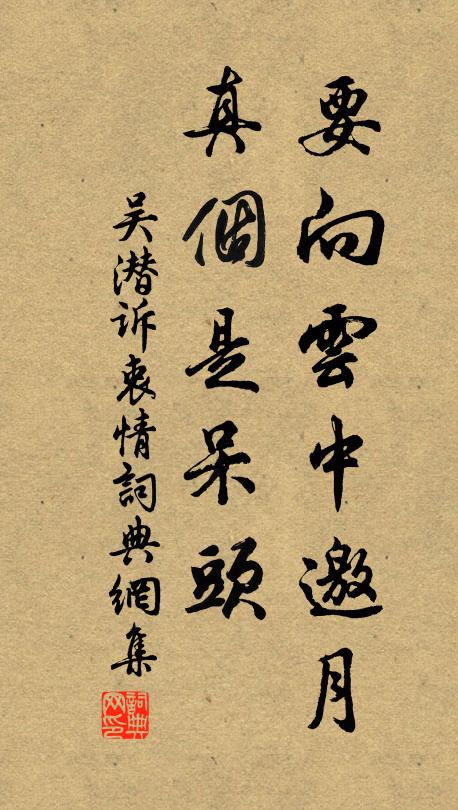 要向雲中邀月
真個是呆頭
吴潜诉衷情詞典網集
詞典网印